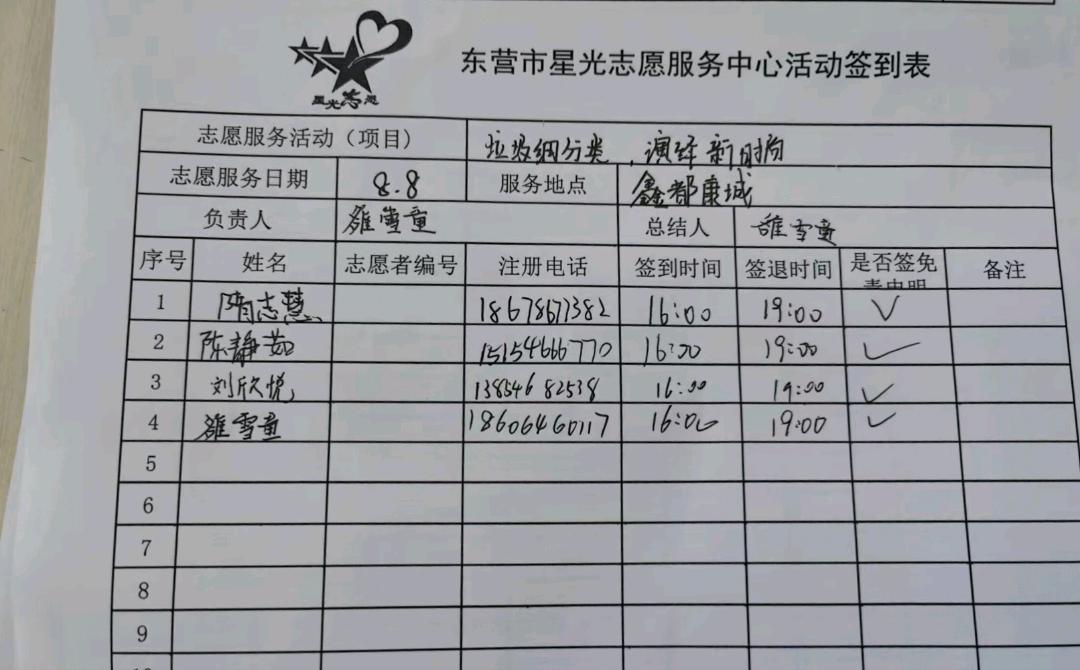 星光志愿
东营市星光志愿服务中心活动签到表
志愿服务活动（项目） 垃圾细分类，演绎新时尚
志愿服务日期 8.8 服务地点 鑫都康城
负责人 雒雪童 总结人 雒雪童
序号 姓名 志愿者编号 注册电话 签到时间 签退时间 是否签免责申明 备注
1 隋志慧 18678677382 16:00 19:00 ✓
2 陈静茹 15154666770 16:00 19:00 ✓
3 刘欣悦 13854682538 16:00 19:00 ✓
4 雒雪童 18606460117 16:00 19:00 ✓
5
6
7
8
9